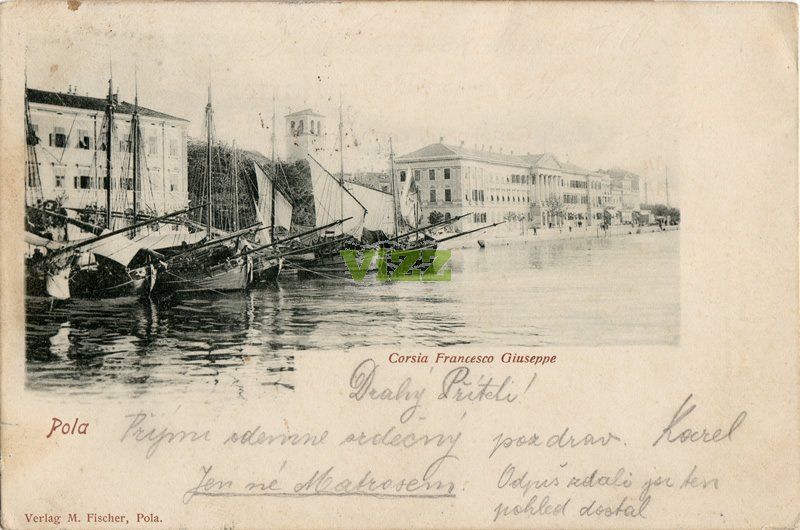 vizz
Corsia Francesco Giuseppe
Drahý Příteli!
Pola
Přijmi odemne srdečný pozdrav. Karel
Jen né Matrosem.
Odpiš zdali jsi ten
pohled dostal
Verlag M. Fischer, Pola.